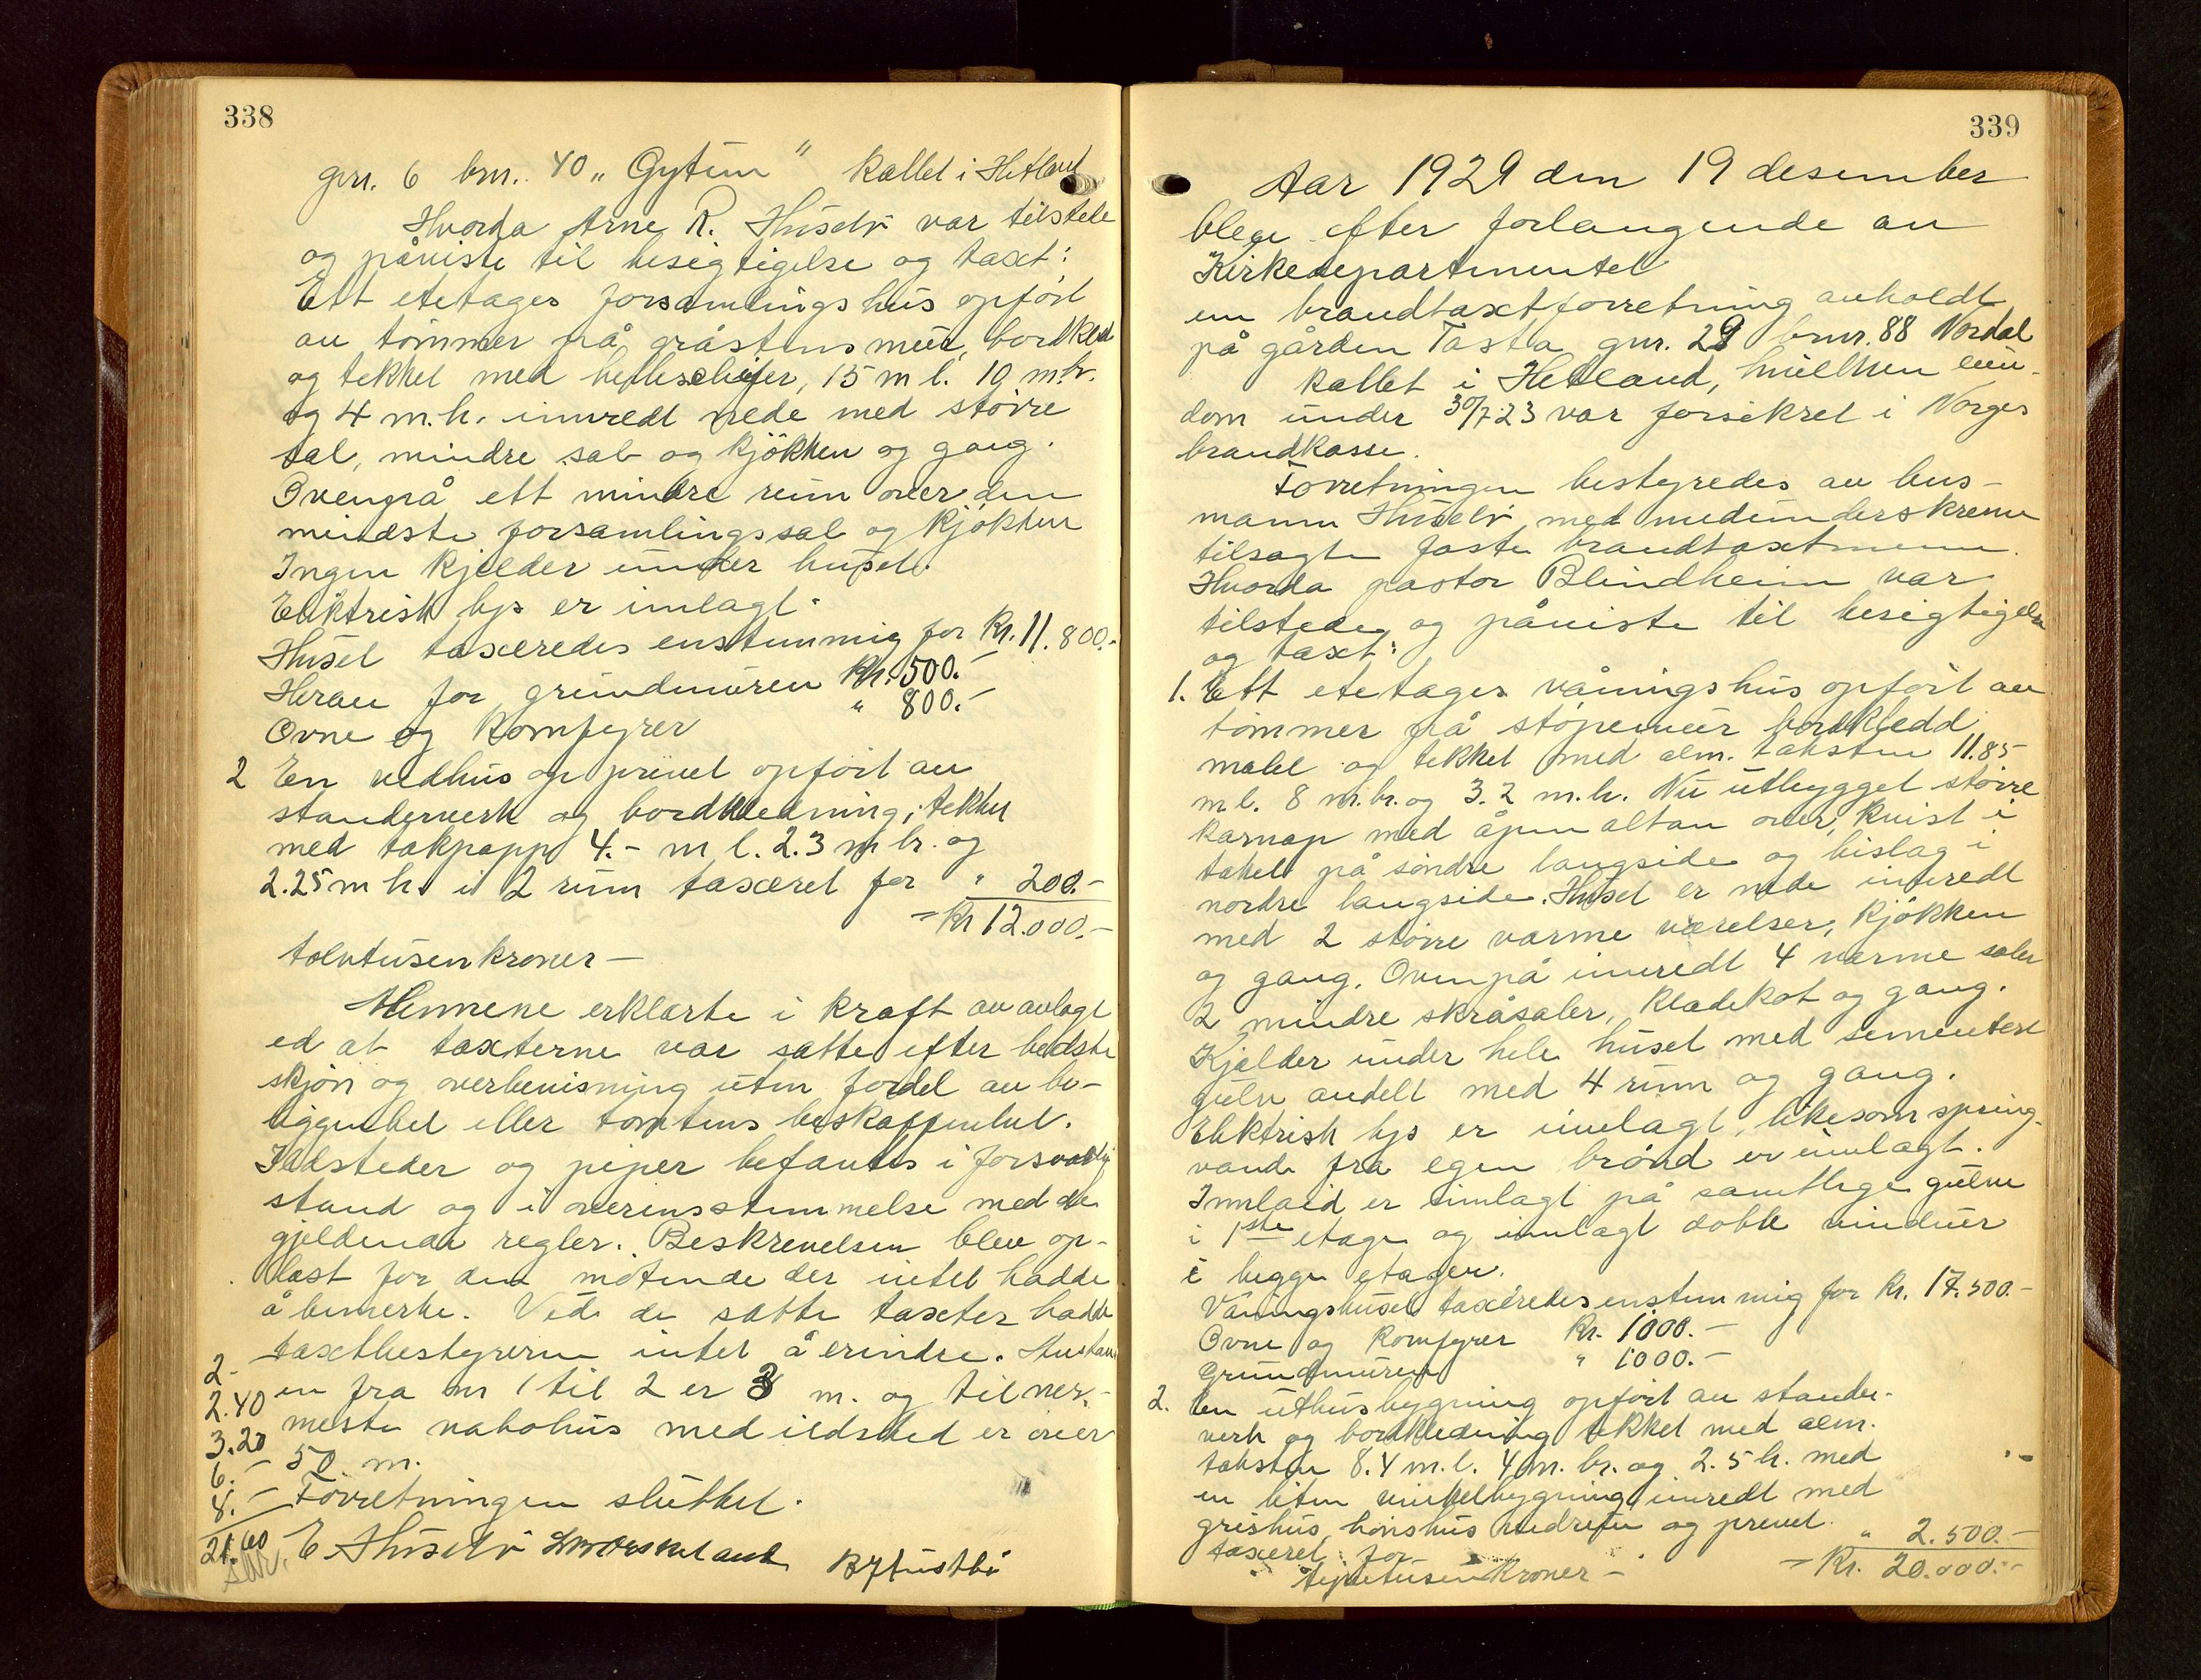 338
gnr. 6 bnr. 40 „Gytun" kallet i Hetland
Hvorda Arne R. Husebö var tilstede
og påviste til besigtigelse og taxt:
Ett etetages forsamlingshus opfört
av tömmer på gråstensmur, bordkled
og tekket med helleschifer, 15 m l. 10 m.br.
og 4 m.h. innredt nede med större
sal, mindre sal og kjökken og gang.
Ovenpå ett mindre rum over den
mindste forsamlingssal og kjökken
Ingen kjelder under huset.
Elektrisk lys er inlagt.
Huset taxeredes enstemmig for Kr. 11.800.-
Herav for grundmuren Kr. 500.-
Ovne og Komfyrer " 800.-
2 En vedhus og privet opfört av
standerverk og bordkledning, tekket
med takpapp 4.- m l. 2.3 m br. og
2.25 m h. i 2 rum taxeret for " 200.-
= Kr 12.000.-
tolvtusenkroner —
Mennene erklærte i kraft av avlagt
ed at taxterne var satte efter bedste
skjön og overbevisning uten fordel av be-
liggenhet eller tomtens beskaffenhet.
Ildsteder og piper befantes i forsvarlig
stand og i overensstemmelse med de
gjeldende regler. Beskrevelsen blev op-
læst for den mötende der intet hadde
å bemerke. Ved de satte taxter hadde
taxtbestyreren intet å erindre. Avstan
en fra nr 1 til 2 er 3 m. og til ner-
meste nabohus med ildsted er over
50 m.
Forretningen sluttet.
2.-
2.40
3.20
6.-
8.-
21.60
E Husebö
339
Aar 1929 den 19 desember
blev efter forlangende av
Kirkedepartementet
en brandtaxtforretning avholdt
på gården Tasta gnr. 29 bnr. 88 Nordal
kallet i Hetland, hvilken eien-
dom under 30/7 23 var forsikret i Norges
brandkasse.
Forretningen bestyredes av lens-
mann Husebö med medunderskrevne
tilsagte faste brandtaxtmenn.
Hvorda pastor Blindheim var
tilstede og påviste til besigtigelse
og taxt:
1. Ett etetages våningshus opfört av
tömmer på stöpemur bordkledd
malet og tekket med alm. taksten 11.85
m l. 8 m.br. og 3.2 m.h. Nu utbygget större
karnap med åpen altan over, kvist i
taket på söndre langside og bislag i
nordre langside. Huset er nede innredt
med 2 större varme værelser, kjökken
og gang. Ovenpå innredt 4 varme saler
2 mindre skråsaler, kladekot og gang.
Kjelder under hele huset med sementert
gulv avdelt med 4 rum og gang.
Elektrisk lys er innlagt, likesom spring-
vand fra egen brönd er innlagt.
Innlaid er innlagt på samtlige gulve
i 1ste etage og innlagt doble vinduer
i begge etager.
Våningshuset taxeredes enstemmig for Kr. 17.500.-
Ovne og Komfyrer Kr. 1000.-
Grundmuren " 1000.-
2. En uthusbygning opfört av stander-
verk og bordkledning tekket med alm.
taksten 8.4 m.l. 4 m. br. og 2.5 h. med
en liten vinkelbygning innredt med
grishus, hönshus vedrefer og privet
taxeret for " 2.500.-
= Kr. 20.000.-
tjuetusenkroner —